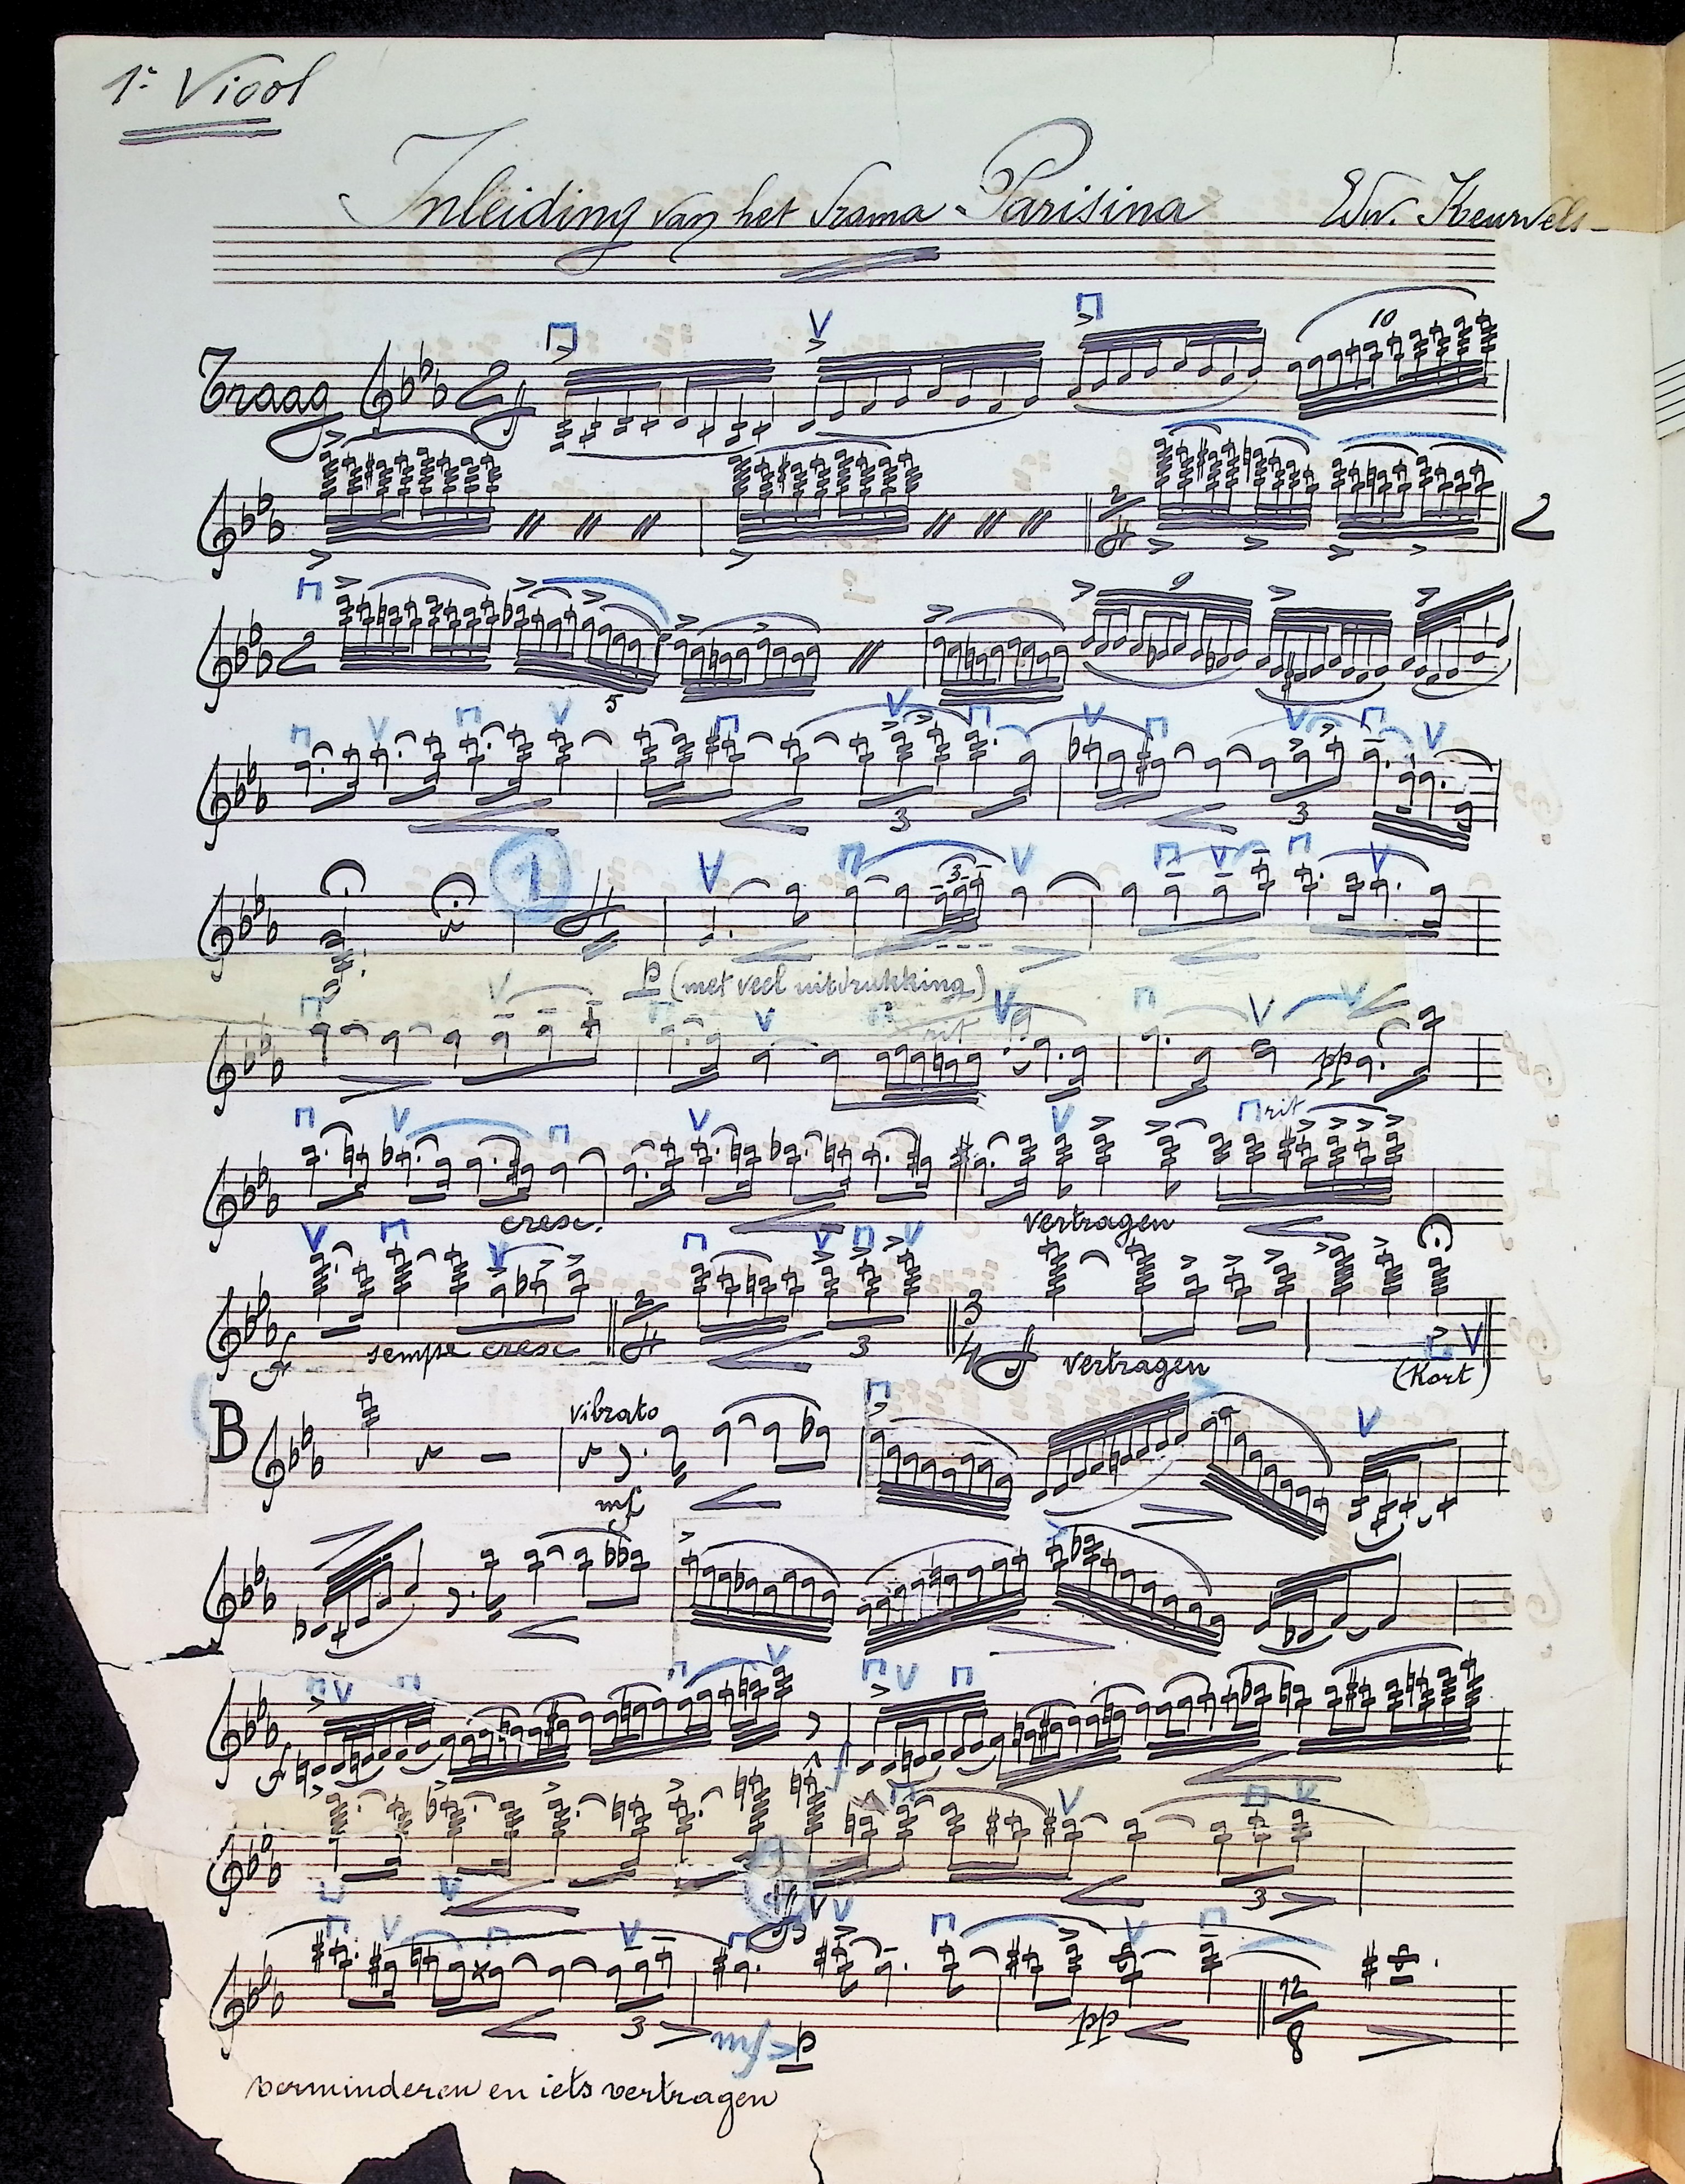 1e Viool
Inleiding van het drama Parisina Edw. Keurvels
Traag 2 ff 10
2 4 2
2 5 9
3 3
1 4 3
p (met veel uitdrukking)
rit
pp
rit
cresc. vertragen
f sempre cresc 2 4 3 3 4 vertragen (Kort)
B vibrato
mf
f f
3
3
3 mf p pp 12 8
verminderen en iets vertragen